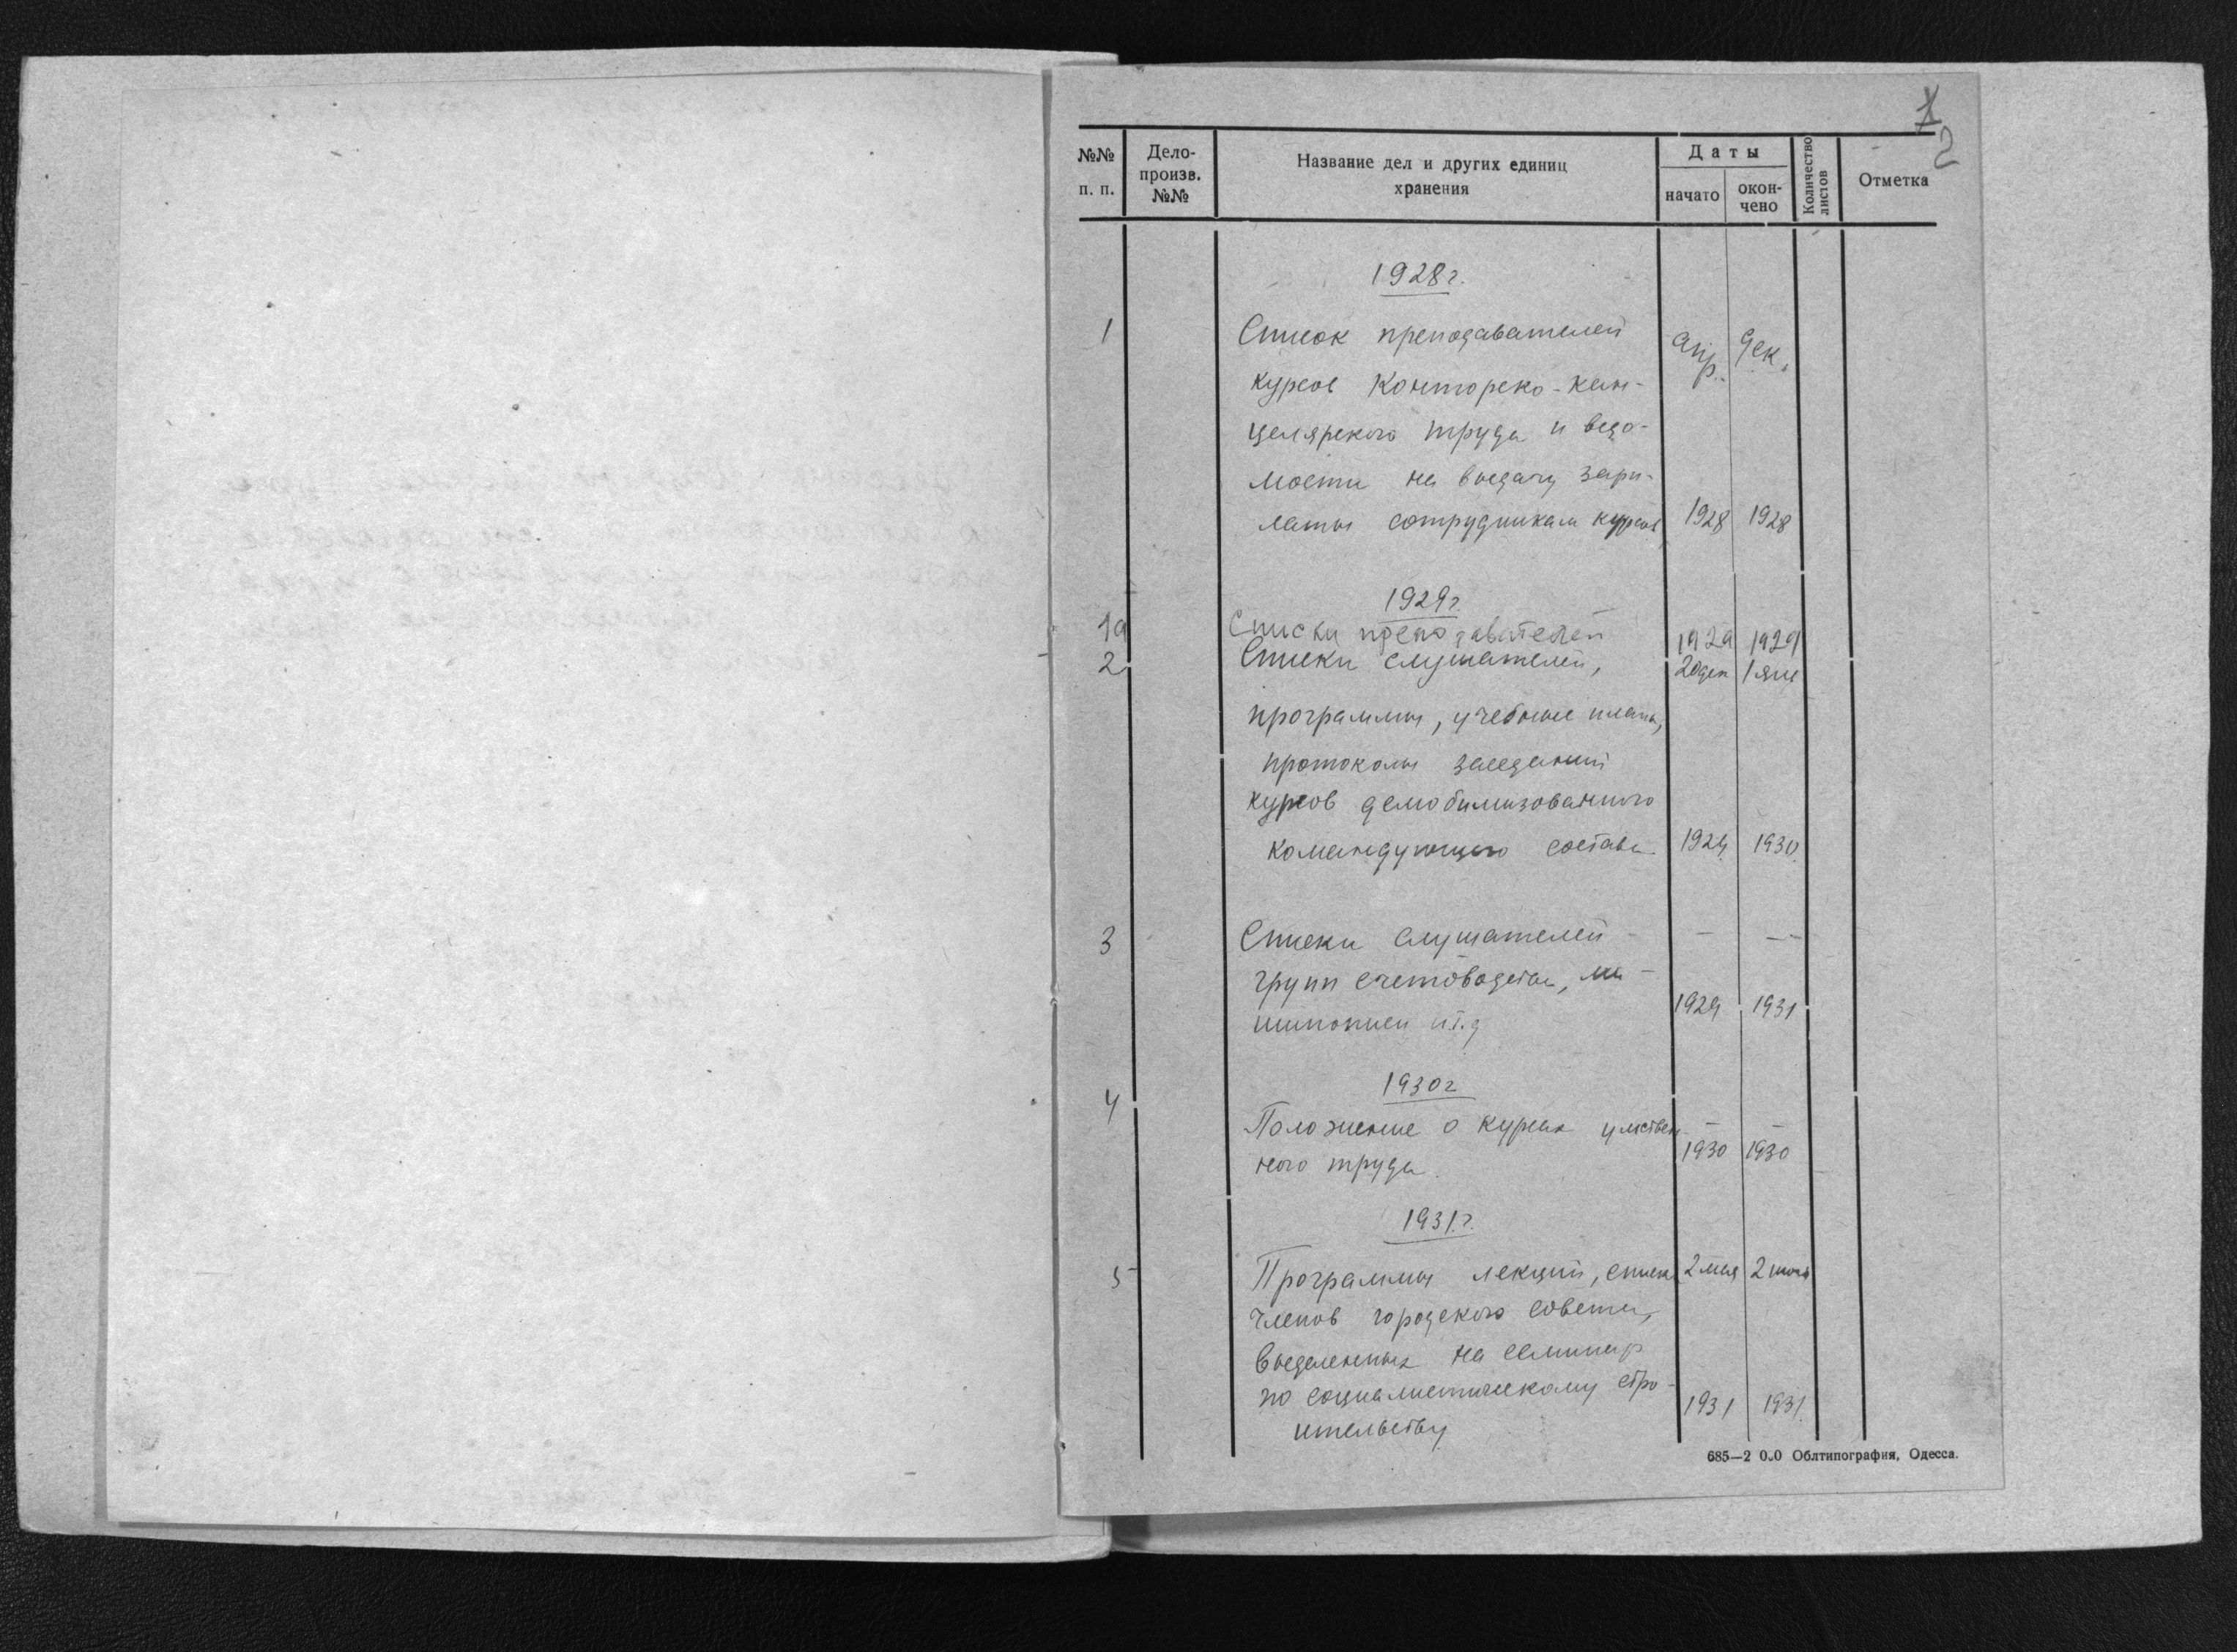 1
2
№№ п. п. Дело-произв. №№ Название дел и других единиц хранения Даты начато окон-чено Количество листов Отметка
1928г.
1 Список преподавателей апр. дек.
курсов Конторско-кан-
целярского труда и ведо-
мости на выдачу зарп-
латы сотрудникам курсов 1928 1928
1929г.
1а Списки преподавателей 1929 1929
2 Списки слушателей, 20 дек 1 янв
программы, учебные планы,
протоколы заседаний
курсов демобилизованного
командующего состава 1929 1930
3 Списки слушателей — —
групп счетоводства, ма-
шинописи и т.д 1929 1931
1930г
4 Положение о курсах умствен- — —
ного труда. 1930 1930
1931г.
5 Программы лекций, списки 2 мая 2 июль
членов городского совета,
выделенных на семинар
по социалистическому стро-
ительству 1931 1931.
685—2 0.0 Облтипография, Одесса.